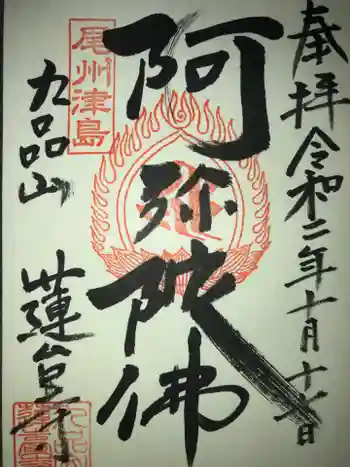 奉拝 令和二年十月十七日
阿弥陀佛
尾州津島
九品山
蓮台寺